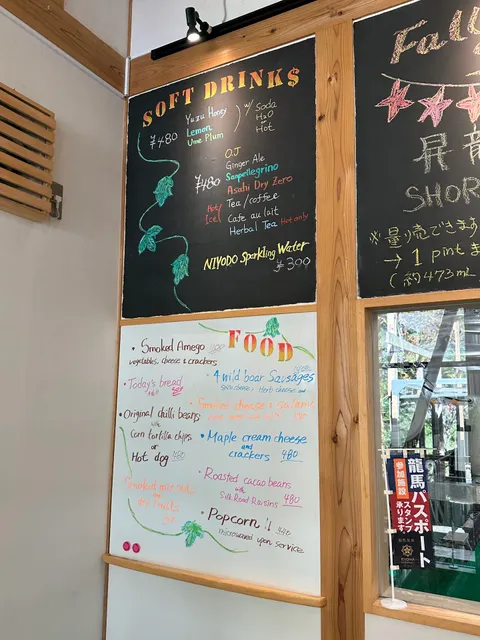 SOFT DRINK$
¥480
Yuzu Honey
Lemon
Ume Plum
w/ Soda
H2O
or
Hot
¥480
O.J
Ginger Ale
Sanpellegrino
Asahi Dry Zero
Hot/
Ice
Tea/coffee
Cafe au lait
Herbal Tea Hot only
NIYODO Sparkling Water
¥300
昇龍
SHOR
※量り売できます
→ 1 pint ま
(約473mL
FOOD
• Smoked Amego
vegetables, cheese & crackers
• Today's bread
• Original chilli beans
with
Corn tortilla chips
or
Hot dog
Smoked mix nuts
dry fruits
• 4 wild boar Sausages
• Maple cream cheese
and
crackers 480
• Roasted cacao beans
with
Silk Road Raisins 480
• Popcorn !!
microwaved upon service
参加施設
龍馬パスポート
スタンプ
承ります。